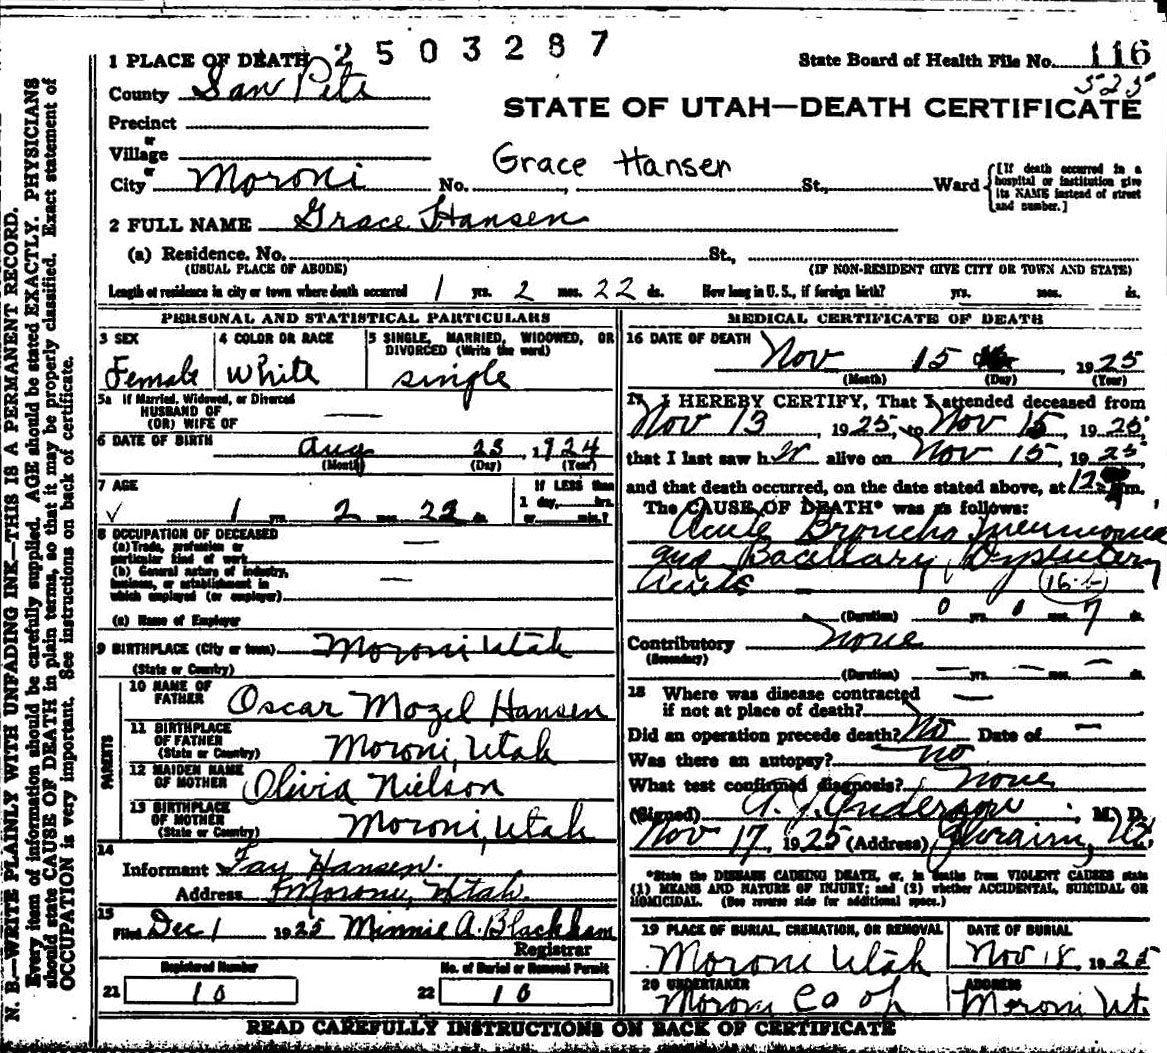 2503287
1 PLACE OF DEATH
State Board of Health File No. 116
525
County San Pete
STATE OF UTAH—DEATH CERTIFICATE
Precinct
or
Village
or
Grace Hansen
City Moroni No. , St., Ward
[If death occurred in a hospital or institution give its NAME instead of street and number.]
2 FULL NAME Grace Hansen
(a) Residence. No. St.,
(USUAL PLACE OF ABODE) (IF NON-RESIDENT GIVE CITY OR TOWN AND STATE)
Length of residence in city or town where death occurred 1 yrs. 2 mos. 22 ds. How long in U. S., if foreign birth? yrs. mos. ds.
PERSONAL AND STATISTICAL PARTICULARS
3 SEX
Female
4 COLOR OR RACE
White
5 SINGLE, MARRIED, WIDOWED, OR DIVORCED (Write the word)
single
5a If Married, Widowed, or Divorced
HUSBAND OF
(OR) WIFE OF —
6 DATE OF BIRTH Aug 23, 1924
(Month) (Day) (Year)
7 AGE
1 yrs. 2 mos. 22 ds.
If LESS than
1 day, hrs.
or min.?
8 OCCUPATION OF DECEASED
(a) Trade, profession or
particular kind of work —
(b) General nature of industry,
business, or establishment in
which employed (or employer) —
(c) Name of Employer
9 BIRTHPLACE (City or town) Moroni Utah
(State or Country)
PARENTS
10 NAME OF FATHER Oscar Mozel Hansen
11 BIRTHPLACE OF FATHER Moroni, Utah
(State or Country)
12 MAIDEN NAME OF MOTHER Olivia Nielson
13 BIRTHPLACE OF MOTHER Moroni, Utah
(State or Country)
14
Informant Fay Hansen.
Address Moroni, Utah.
15
Filed Dec 1 1925 Minnie A. Blackham
Registrar
Registered Number
21 10
No. of Burial or Removal Permit
22 10
MEDICAL CERTIFICATE OF DEATH
16 DATE OF DEATH
Nov 15 1925
(Month) (Day) (Year)
17 I HEREBY CERTIFY, That I attended deceased from
Nov 13 1925, to Nov 15, 1925,
that I last saw her alive on Nov 15, 1925
and that death occurred, on the date stated above, at 12 m.
The CAUSE OF DEATH* was as follows:
Acute Broncho Pneumonia
and Bacillary Dysentery
Acute
(Duration) 0 yrs. 0 mos. 7 ds.
Contributory none
(Secondary)
(Duration) — yrs. — mos. — ds.
18 Where was disease contracted
if not at place of death? —
Did an operation precede death? No Date of —
Was there an autopsy? no
What test confirmed diagnosis? none
(Signed) A. J. Anderson, M. D.
Nov 17, 1925 (Address) Ephraim, Ut.
*State the DISEASE CAUSING DEATH, or, in deaths from VIOLENT CAUSES state
(1) MEANS AND NATURE OF INJURY; and (2) whether ACCIDENTAL, SUICIDAL OR
HOMICIDAL. (See reverse side for additional space.)
19 PLACE OF BURIAL, CREMATION, OR REMOVAL
Moroni Utah
DATE OF BURIAL
Nov 18, 1925
20 UNDERTAKER
Moroni Co op
ADDRESS
Moroni Ut.
READ CAREFULLY INSTRUCTIONS ON BACK OF CERTIFICATE
N. B.—WRITE PLAINLY WITH UNFADING INK—THIS IS A PERMANENT RECORD.
Every item of information should be carefully supplied. AGE should be stated EXACTLY. PHYSICIANS
should state CAUSE OF DEATH in plain terms, so that it may be properly classified. Exact statement of
OCCUPATION is very important. See instructions on back of certificate.